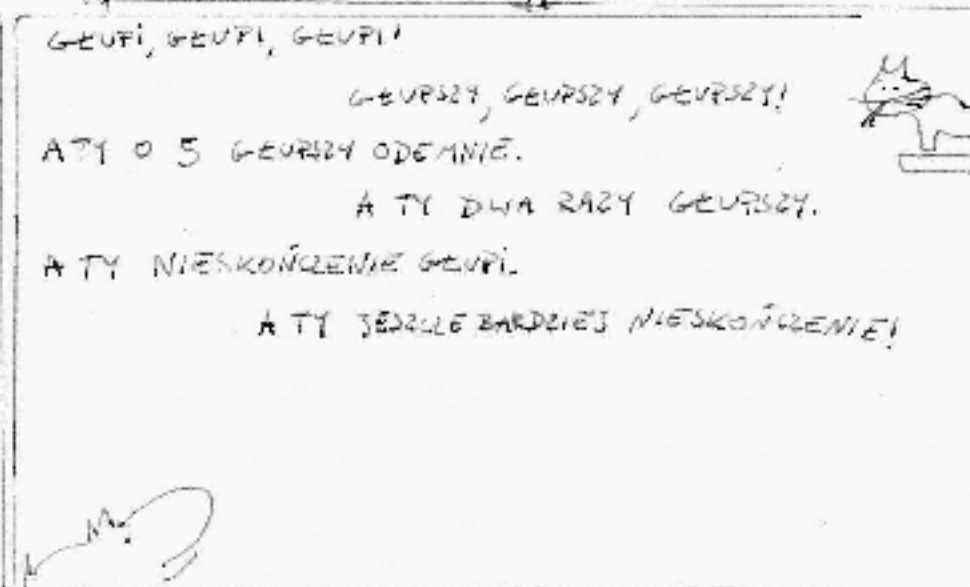 GŁUPi, GŁUPi, GŁUPi!
GŁUPSZY, GŁUPSZY, GŁUPSZY!
A TY O 5 GŁUPSZY ODEMNIE.
A TY DWA RAZY GŁUPSZY.
A TY NIESKOŃCZENIE GŁUPi.
A TY JESZCZE BARDZIEJ NIESKOŃCZENIE!